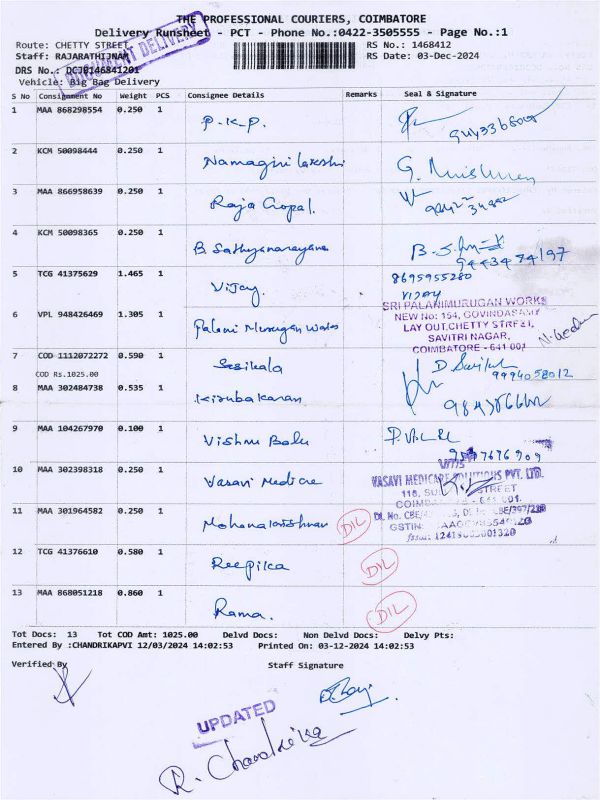 THE PROFESSIONAL COURIERS, COIMBATORE
Delivery Runsheet - PCT - Phone No.:0422-3505555 - Page No.:1
Route: CHETTY STREET RS No.: 1468412
Staff: RAJARATHINAM RS Date: 03-Dec-2024
DRS No.: DCJB146841201
DELIVERY
Vehicle: Big Bag Delivery
S No Consignment No Weight PCS Consignee Details Remarks Seal & Signature
1 MAA 868298554 0.250 1 P.K.P.
2 KCM 50098444 0.250 1 Namagiri lakshmi
3 MAA 866958639 0.250 1 Raja Gopal.
4 KCM 50098365 0.250 1 B. Sathyanarayana
5 TCG 41375629 1.465 1 Vijay. 8695955280
VIJAY
6 VPL 948426469 1.305 1 Palani Murugan Works
SRI PALANIMURUGAN WORKS
NEW No: 154, GOVINDASAMY
LAY OUT,CHETTY STREET,
SAVITRI NAGAR,
COIMBATORE - 641 001
7 COD 1112072272 0.590 1 Sasikala 9994058012
COD Rs.1025.00
8 MAA 302484738 0.535 1 Kirubakaran
9 MAA 104267970 0.100 1 Vishnu Balu
10 MAA 302398318 0.250 1 Vasavi Medicare
VASAVI MEDICARE SOLUTIONS PVT. LTD.
STREET
11 MAA 301964582 0.250 1 Mohanakrishnan DIL
12 TCG 41376610 0.580 1 Reepika DIL
13 MAA 868051218 0.860 1 Rama. DIL
Tot Docs: 13 Tot COD Amt: 1025.00 Delvd Docs: Non Delvd Docs: Delvy Pts:
Entered By :CHANDRIKAPVI 12/03/2024 14:02:53 Printed On: 03-12-2024 14:02:53
Verified By Staff Signature
UPDATED
R. Chandrika